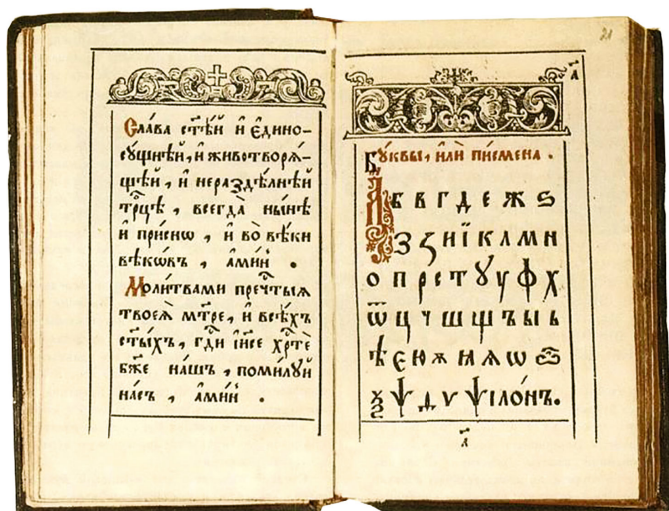 Сла́ва ст҃ѣ́й и҆ є҆дино-
сꙋ́щнѣй, и҆ животворѧ́-
щей, и҆ нераздѣ́лнѣй
трⷪ҇цѣ, всегда̀ ны́нѣ
и҆ при́снѡ, и҆ во вѣ́ки
вѣкѡ́въ, а҆ми́нь.
Моли́твами пречⷭ҇тыѧ
твоеѧ̀ мт҃ре, и҆ всѣ́хъ
ст҃ы́хъ, гдⷭ҇и і҆и҃се хрⷭ҇тѐ
бж҃е на́шъ, поми́лꙋй
на́съ, а҆ми́нь.
а҃
Бꙋ́квы, и҆лѝ писмена̀.
А б в г д е ж ѕ
З ꙁ и ї к л м н
о п р с т ꙋ у ф х
ѿ ц ч ш щ ъ ы ь
ѣ є ю ѫ ꙗ ѧ ѡ
ѯ ѱ д ѵ ѱїло́нъ.
а҃